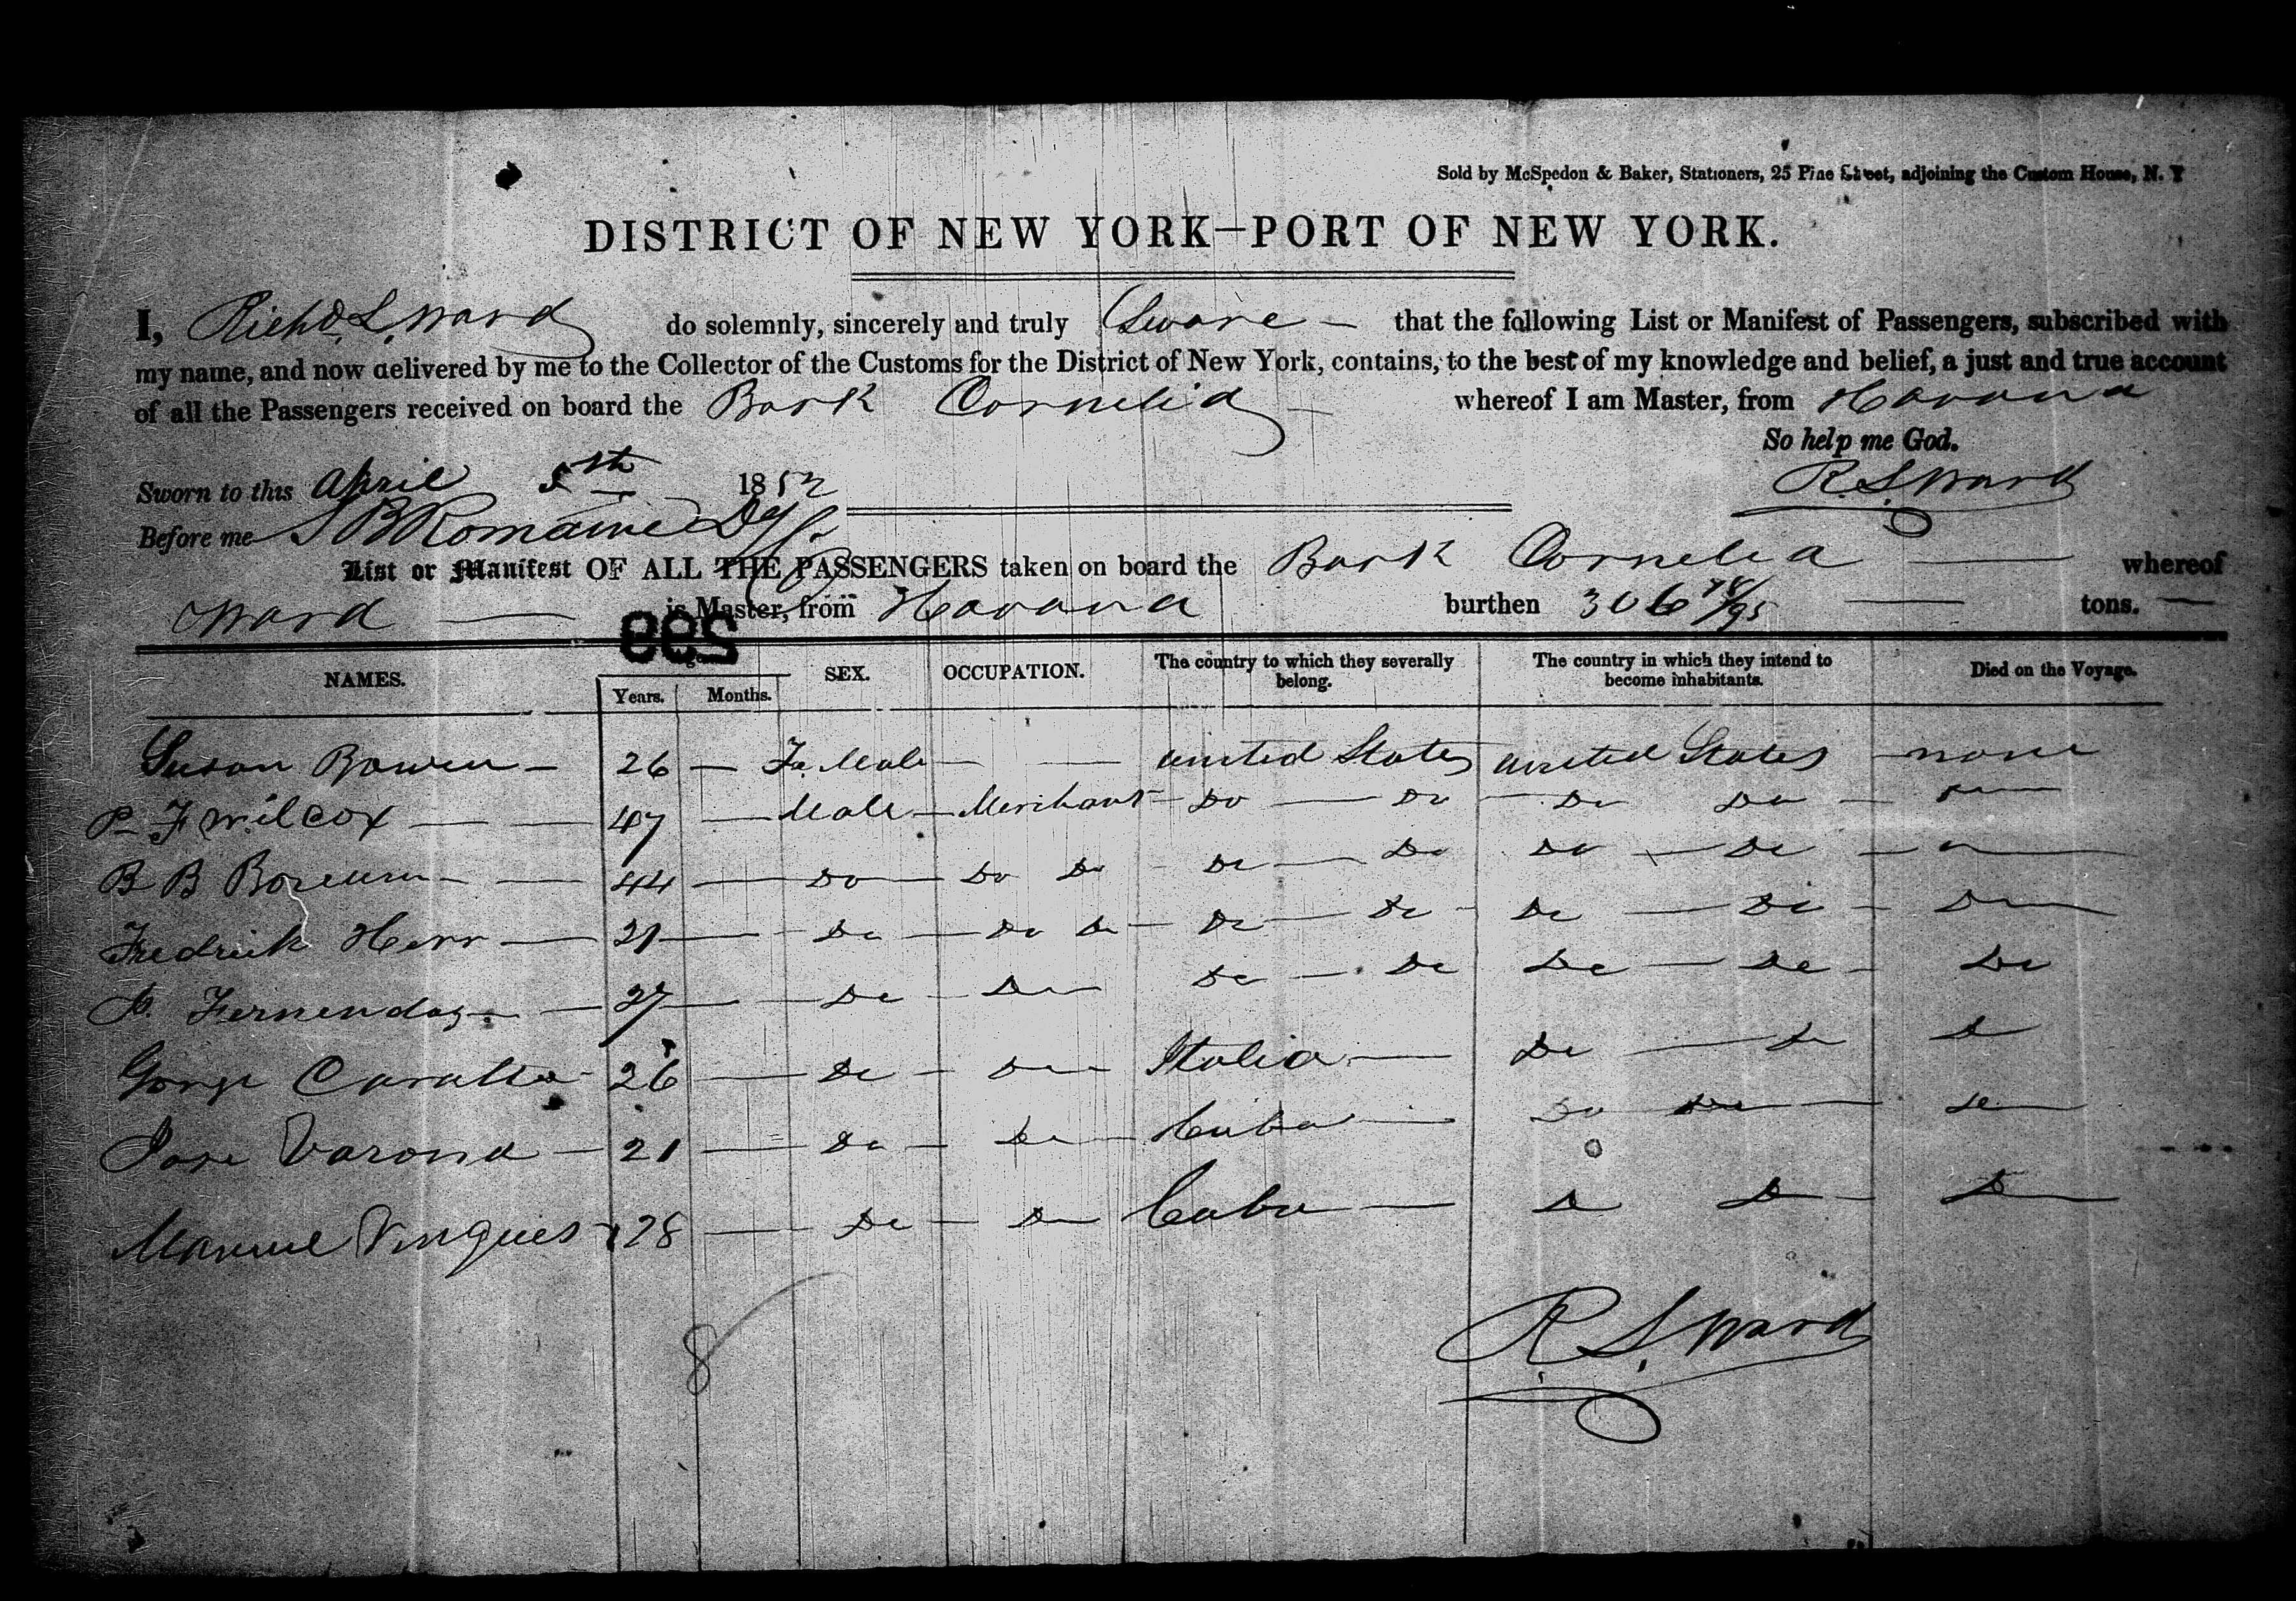 Sold by McSpedon & Baker, Stationers, 25 Pine Street, adjoining the Custom House, N. Y
DISTRICT OF NEW YORK—PORT OF NEW YORK.
I, Richd. L. Ward do solemnly, sincerely and truly Sware — that the following List or Manifest of Passengers, subscribed with
my name, and now delivered by me to the Collector of the Customs for the District of New York, contains, to the best of my knowledge and belief, a just and true account
of all the Passengers received on board the Bark Cornelia whereof I am Master, from Havana
So help me God.
Sworn to this April 5th 1852 R. L. Ward
Before me S B Romaine
List or Manifest OF ALL THE PASSENGERS taken on board the Bark Cornelia — whereof
Ward — is Master, from Havana burthen 306 78/95 — tons. —
299
NAMES. Years. Months. SEX. OCCUPATION. The country to which they severally belong. The country in which they intend to become inhabitants. Died on the Voyage.
Susan Bowen — 26 — Fe.Male — — United States United States — none
P F Wilcox — — 47 — Male — Merchant — Do — Do — Do Do —
B B — — 44 — Do — Do Do — Do — Do Do — Do —
Fredrick Herr — 21 — Do — Do Do — Do — Do — Do — Do — Do —
27 — Do — Do — Do — Do Do — Do — Do
George 26 — Do — Do — Italia — Do — Do Do
Jose Varona — 21 — Do — Do — Cuba — Do Do — Do —
Manuel 28 — Do — Do — Cuba — Do Do — Do —
8
R. L. Ward